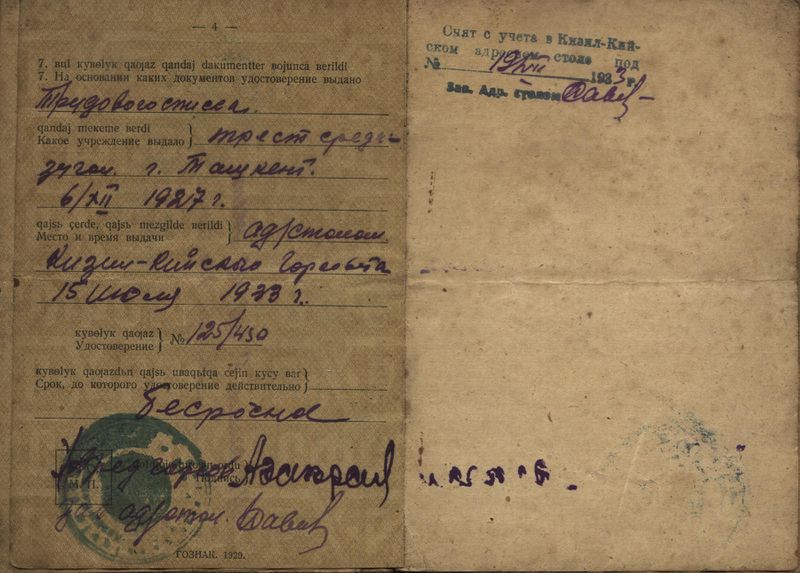 — 4 —
7. bul kyвөlyk qaojaz qandaj dakumentter bojunca berildi
7. На основании каких документов удостоверение выдано
Трудового списка.
qandaj mekeme berdi
Какое учреждение выдало } трест средаз-
уголь. г. Ташкент.
6/XII 1927 г.
qajsь çerde, qajsь mezgilde berildi
Место и время выдачи } адрстолом
Кизил-Кийского Горсовета
15 июля 1933 г.
kyвөlyk qaojaz
Удостоверение } № 125/430
kyвөlyk qaojazdьn qajsь uвaqьtqa cejin kycy вar
Срок, до которого удостоверение действительно }
Бессрочно
Подпись
М. П.
зав адрстол. Савев
ГОЗНАК. 1929.
Снят с учета в Кизил-Кий-
ском адресном столе под
№ 19/VII 1933 г.
Зав. Адр. столом Савев